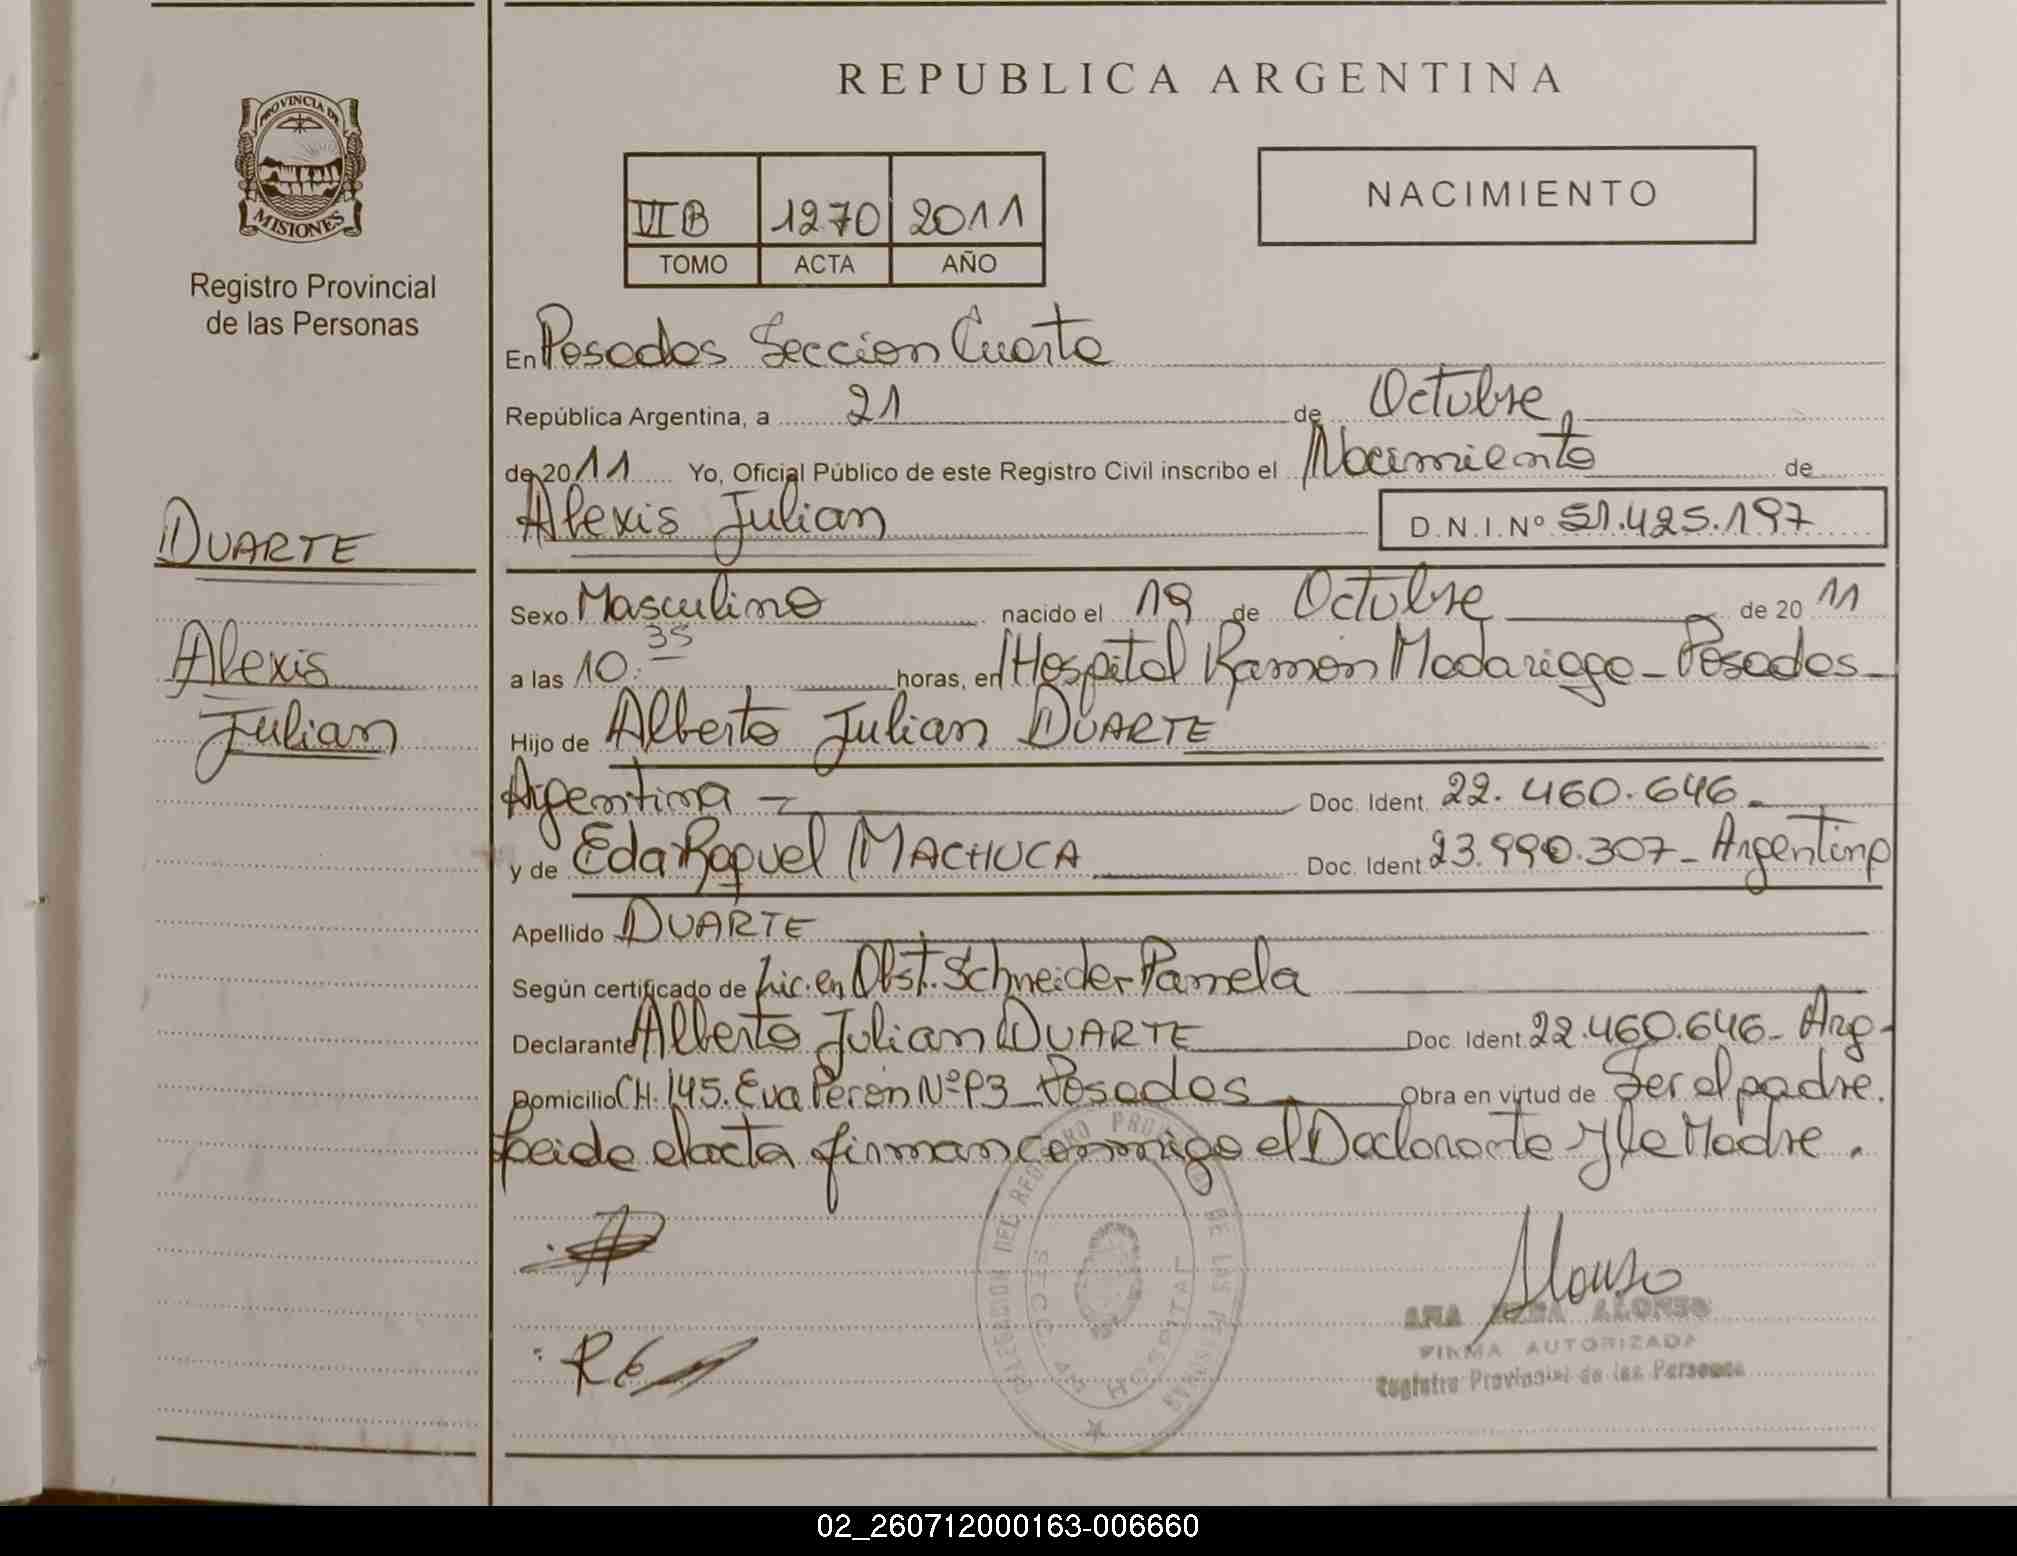 REPUBLICA ARGENTINA
PROVINCIA DE
MISIONES
Registro Provincial
de las Personas
VI B 1270 2011
TOMO ACTA AÑO
NACIMIENTO
En Posadas Seccion Cuarta
República Argentina, a 21 de Octubre
de 2011 Yo, Oficial Público de este Registro Civil inscribo el Nacimiento de
Alexis Julian D.N.I.Nº 51.425.197
DUARTE
Alexis
Julian
Sexo Masculino nacido el 19 de Octubre de 2011
a las 10:35 horas, en Hospital Ramón Madariaga - Posadas -
Hijo de Alberto Julian DUARTE
Argentina - Doc. Ident. 22.460.646 -
y de Eda Raquel MACHUCA Doc. Ident. 23.990.307 - Argentina
Apellido DUARTE
Según certificado de Lic. en Obst. Schneider Pamela
Declarante Alberto Julian DUARTE Doc. Ident. 22.460.646 - Arg -
Domicilio CH. 145. Eva Perón Nº P3 Posadas Obra en virtud de Ser el padre.
Leida el acta firman conmigo el Declarante y la Madre.
DELEGACION DEL REGISTRO PROVINCIAL DE LAS PERSONAS
SECC. 4a HOSPITAL
Alonso
ANA ALONSO
FIRMA AUTORIZADA
Registro Provincial de las Personas
02_260712000163-006660